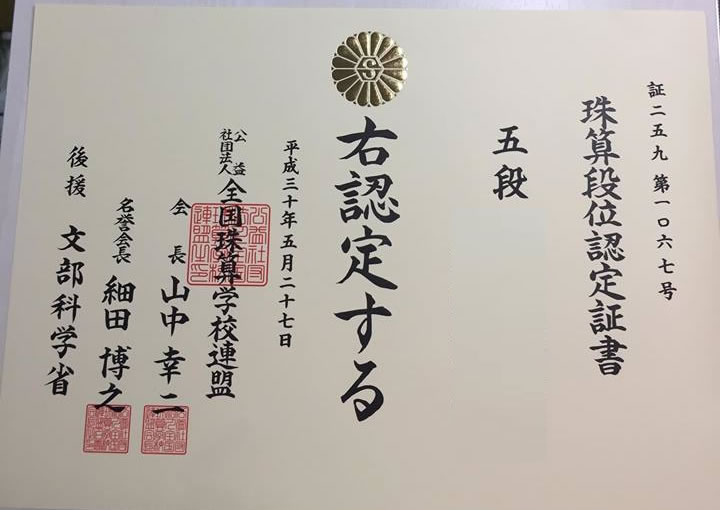 証二五九 第一〇六七号
珠算段位認定証書
五段
右認定する
平成三十年五月二十七日
公益社団法人 全国珠算学校連盟
会長 山中幸二
名誉会長 細田博之
後援 文部科学省